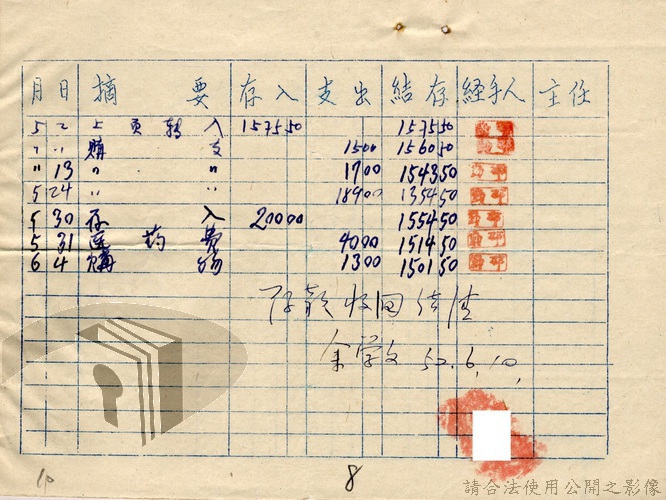 月 日 摘要 存入 支出 結存 經手人 主任
5 2 上頁轉入 157550 157550
〃 〃 購支 1500 156050
〃 13 〃 〃 1700 154350
5 24 〃 〃 18900 135450
5 30 存入 20000 155450
5 31 医药费 4000 151450
6 4 購物 1300 150150
存款收回結清
余学文 52.6.10.
10
8
請合法使用公開之影像